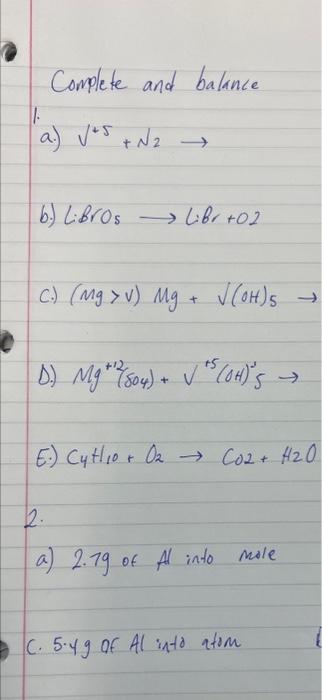 Complete and balance
1.
a.) V+5 + N2 →
b.) LiBrO5 → LiBr + O2
C.) (Mg > V) Mg + V(OH)5 →
D.) Mg+12(SO4) + V+5(OH)-5 →
E.) C4H10 + O2 → CO2 + H2O
2.
a) 2.7g of Al into mole
C. 5.4 g of Al into atom